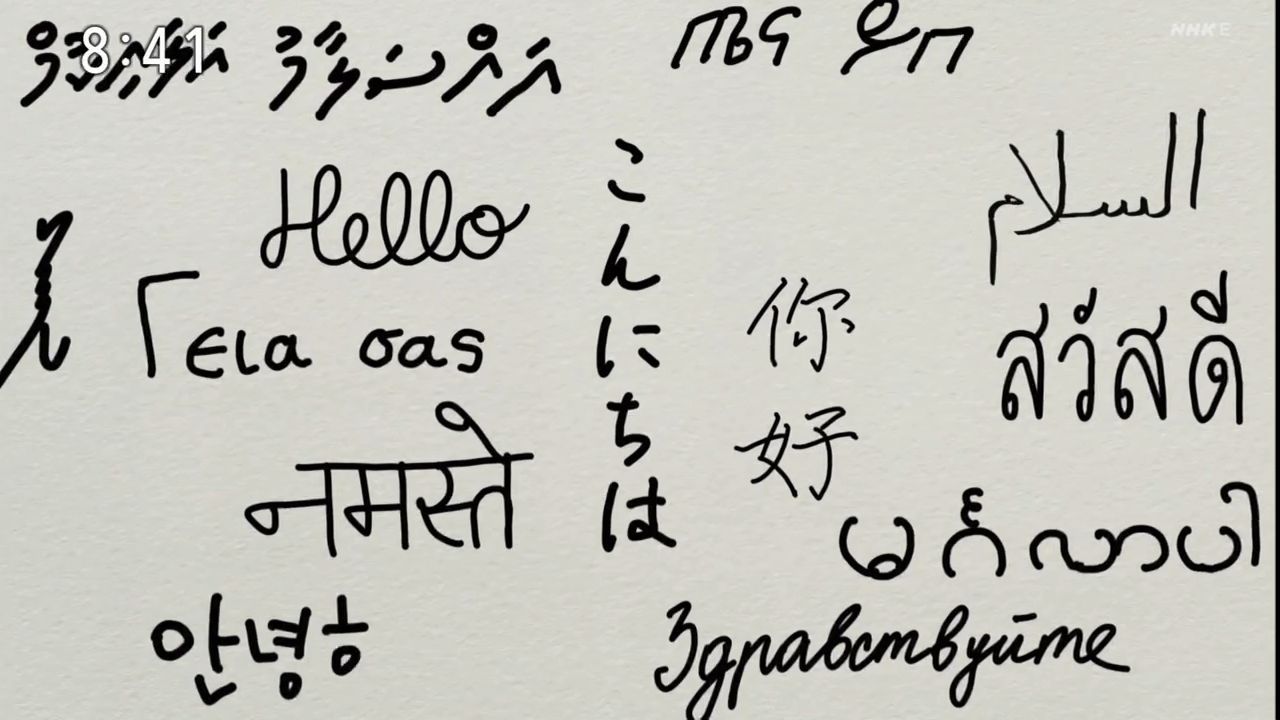 8:41
NHK E
Hello
Γεια σας
नमस्ते
안녕ㅎ
こんにちは
你好
السلام
สวัสดี
မင်္ဂလာပါ
Здравствуйте